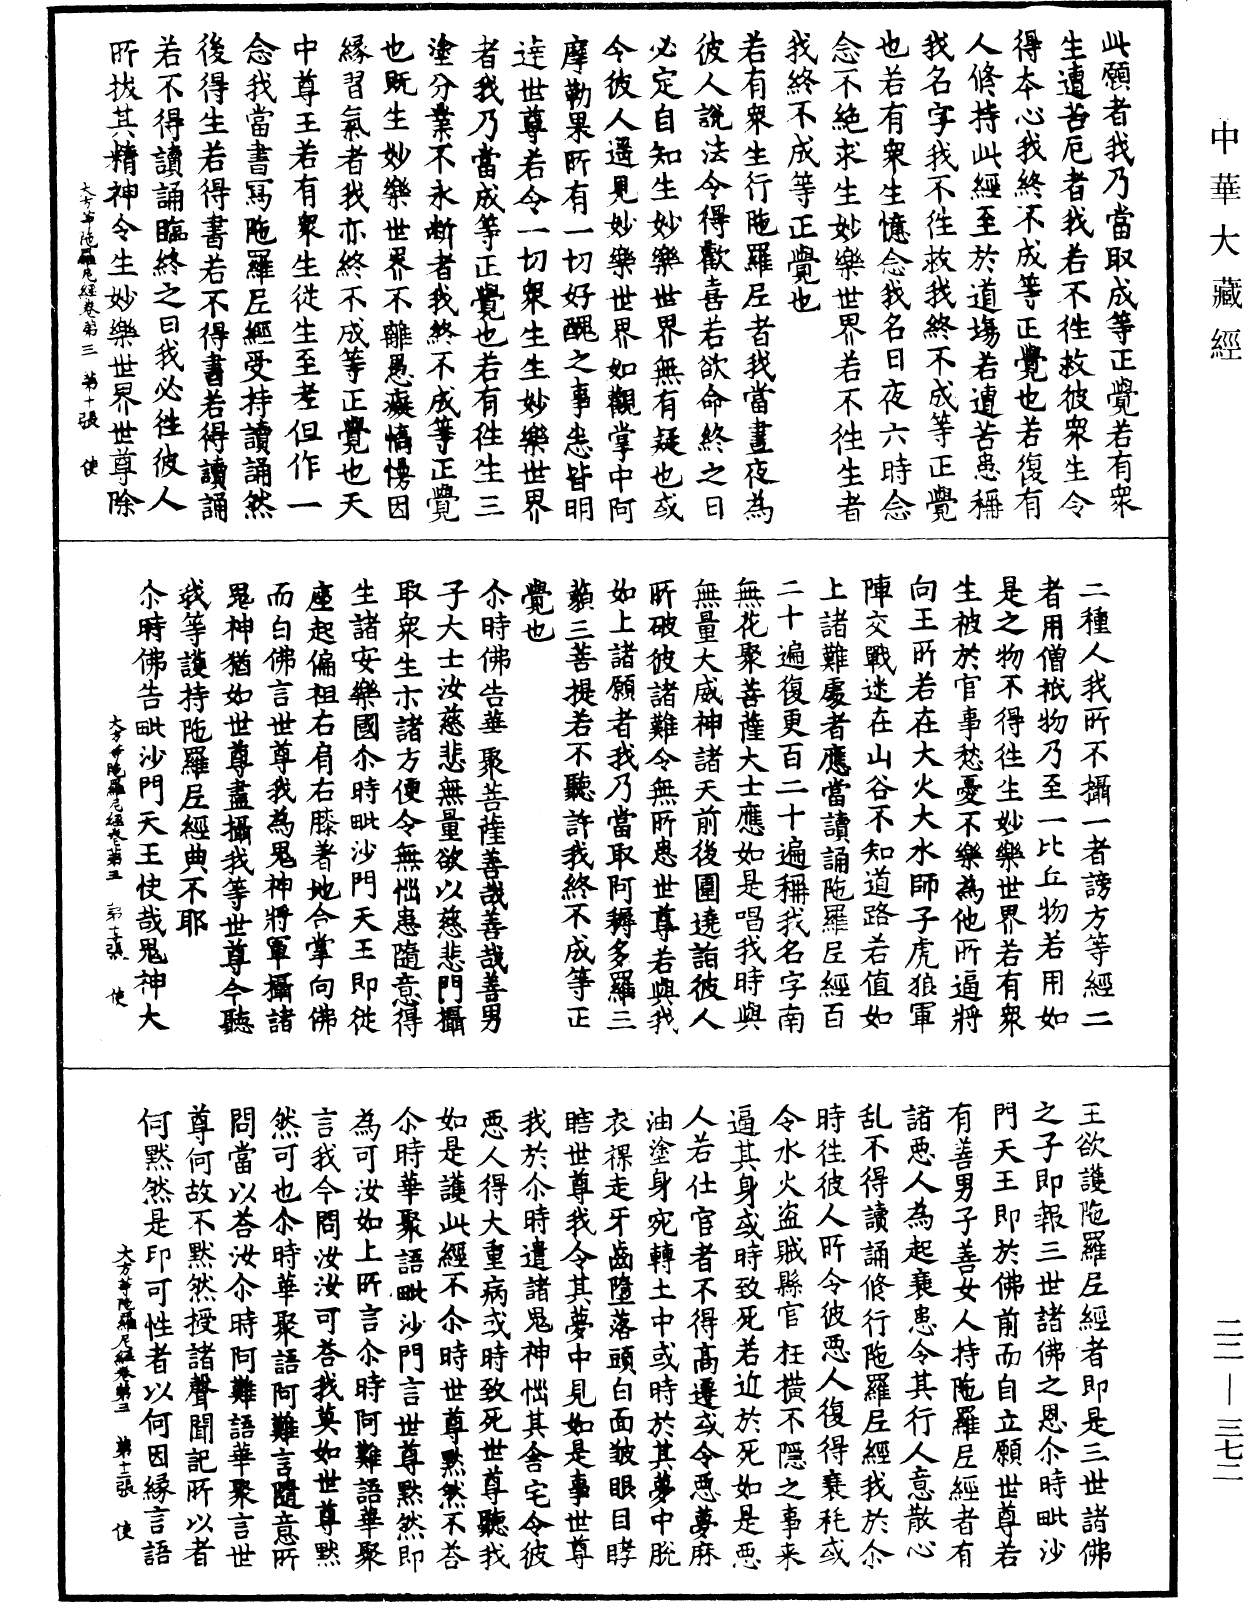 中華大藏經
此願者我乃當取成等正覺若有衆
生遭苦厄者我若不往救彼衆生令
得本心我終不成等正覺也若復有
人修持此經至於道場若遭苦患稱
我名字我不往救我終不成等正覺
也若有衆生憶念我名日夜六時念
念不絶求生妙樂世界若不往生者
我終不成等正覺也
若有衆生行陁羅尼者我當晝夜為
彼人說法令得歡喜若欲命終之日
必定自知生妙樂世界無有疑也或
令彼人遥見妙樂世界如觀掌中阿
摩勒果所有一切好醜之事悉皆明
達世尊若令一切衆生生妙樂世界
者我乃當成等正覺也若有往生三
塗分業不永斷者我終不成等正覺
也既生妙樂世界不離愚癡憍慢因
緣習氣者我亦終不成等正覺也天
中尊王若有衆生從生至老但作一
念我當書寫陁羅尼經受持讀誦然
後得生若得書若不得書若得讀誦
若不得讀誦臨終之日我必往彼人
所拔其精神令生妙樂世界世尊除
大方等陁羅尼經卷第三 第十張 使
二種人我所不攝一者謗方等經二
者用僧祇物乃至一比丘物若用如
是之物不得往生妙樂世界若有衆
生被於官事愁憂不樂為他所逼將
向王所若在大火大水師子虎狼軍
陣交戰迷在山谷不知道路若值如
上諸難處者應當讀誦陁羅尼經百
二十遍復更百二十遍稱我名字南
無花聚菩薩大士應如是唱我時與
無量大威神諸天前後圍遶詣彼人
所破彼諸難令無所患世尊若與我
如上諸願者我乃當取阿耨多羅三
藐三菩提若不聽許我終不成等正
覺也
尒時佛告華聚菩薩善哉善哉善男
子大士汝慈悲無量欲以慈悲門攝
取衆生示諸方便令無惱患隨意得
生諸安樂國尒時毗沙門天王即從
座起偏袒右肩右膝著地合掌向佛
而白佛言世尊我為鬼神將軍攝諸
鬼神猶如世尊盡攝我等世尊今聽
我等護持陁羅尼經典不耶
尒時佛告毗沙門天王快哉鬼神大
大方等陁羅尼經卷第三 第十一張 使
王欲護陁羅尼經者即是三世諸佛
之子即報三世諸佛之恩尒時毗沙
門天王即於佛前而自立願世尊若
有善男子善女人持陁羅尼經者有
諸惡人為起衰患令其行人意散心
乱不得讀誦修行陁羅尼經我於尒
時往彼人所令彼惡人復得衰耗或
令水火盜賊縣官枉橫不隱之事来
逼其身或時致死若近於死如是惡
人若仕官者不得高遷或令惡夢麻
油塗身宛轉土中或時於其夢中脫
衣裸走牙齒墮落頭白面皺眼目睟
瞎世尊我令其夢中見如是事世尊
我於尒時遣諸鬼神惱其舍宅令彼
惡人得大重病或時致死世尊聽我
如是護此經不尒時世尊默然不荅
尒時華聚語毗沙門言世尊默然即
為可汝如上所言尒時阿難語華聚
言我今問汝汝可荅我莫如世尊默
然可也尒時華聚語阿難言隨意所
問當以荅汝尒時阿難語華聚言世
尊何故不默然授諸聲聞記所以者
何默然是印可性者以何因緣言語
大方等陁羅尼經卷第三 第十二張 使
二二—三七二